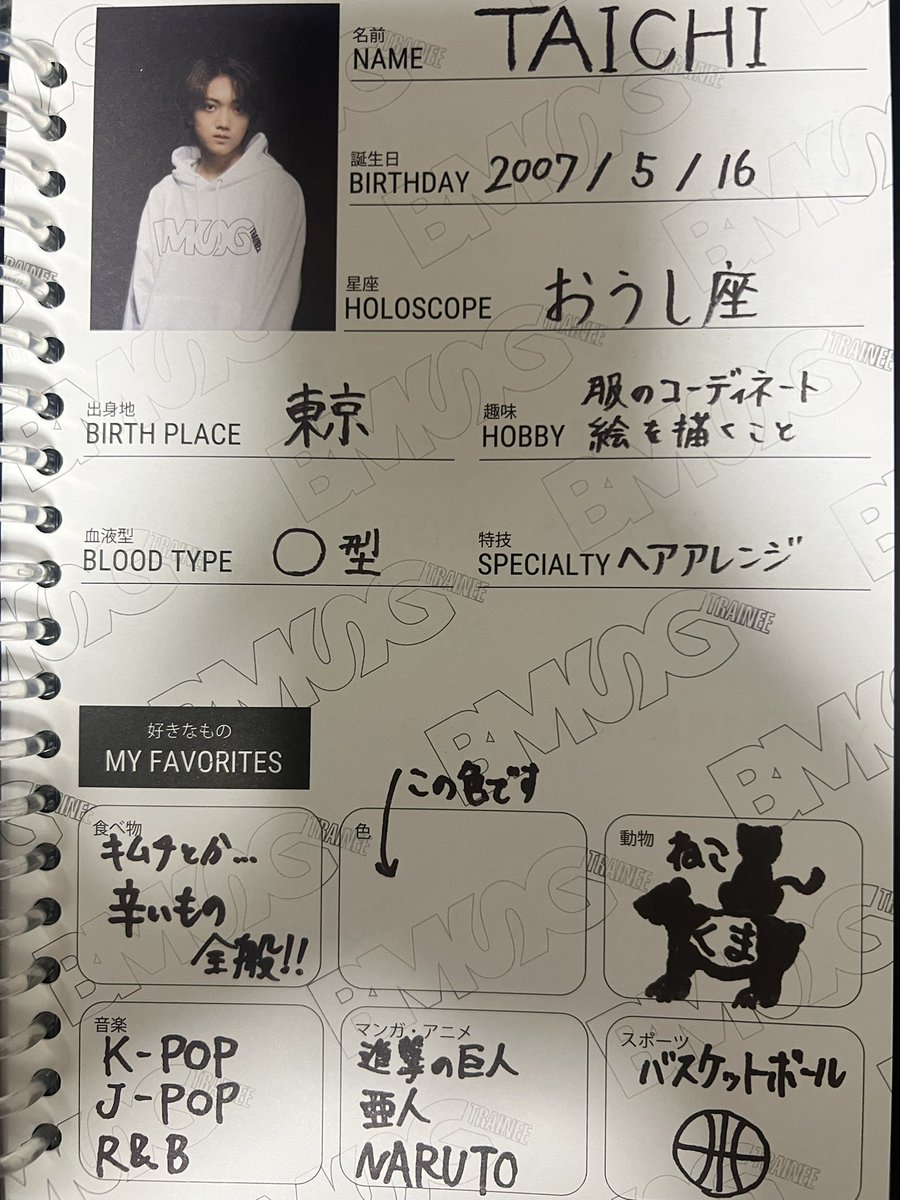 名前
NAME
TAICHI
誕生日
BIRTHDAY
2007/5/16
星座
HOLOSCOPE
おうし座
出身地
BIRTH PLACE
東京
趣味
HOBBY
服のコーディネート
絵を描くこと
血液型
BLOOD TYPE
O型
特技
SPECIALTY
ヘアアレンジ
好きなもの
MY FAVORITES
食べ物
キムチとか…
辛いもの
全般!!
色
この色です
動物
ねこ
くま
音楽
K-POP
J-POP
R&B
マンガ・アニメ
進撃の巨人
亜人
NARUTO
スポーツ
バスケットボール
BMSG
TRAINEE